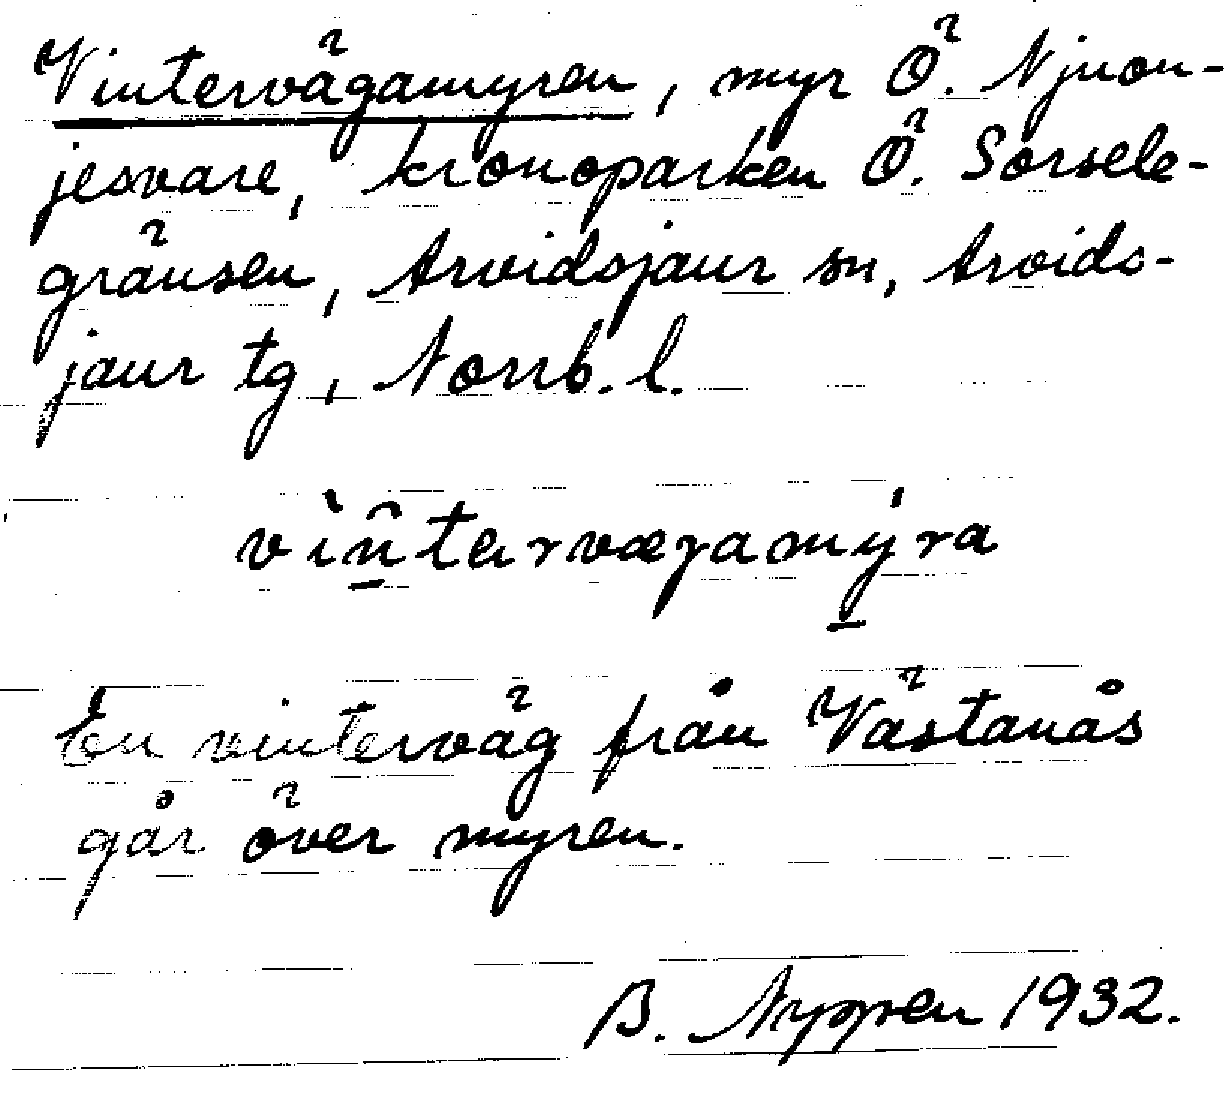 Vintervägamyren, myr Ö. Njuon-
jesvare, kronoparken Ö. Sorsele-
gränsen, Arvidsjaur sn, Arvids-
jaur tg, Norrb. l.
vìn̂tərvæɡamýra
En vinterväg från Västanås
går över myren.
B. Nyppen 1932.